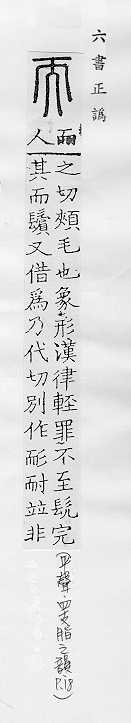 六書正譌
而之切頰毛也象形漢律輕罪不至髡完
人其而鬚又借爲乃代切別作耏耐竝非
(平聲．四支脂之韻 P.18)